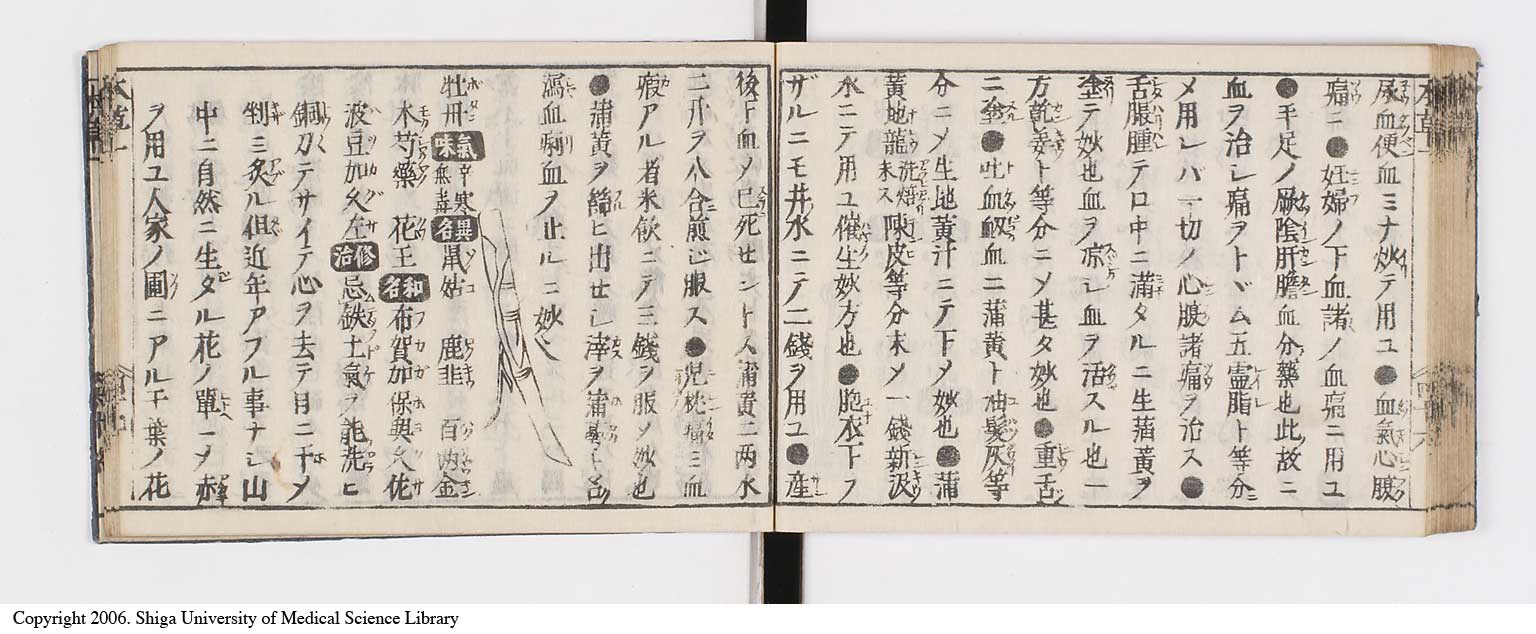 尿血便血ミナ炒テ用ユ●血氣心腹
痛ニ●妊婦ノ下血諸ノ血痛ニ用ユ
●手足ノ厥陰肝膽血分藥也此故ニ
血ヲ治シ痛ヲトヾム五霊脂ト等分
メ用レバ一切ノ心腹諸痛ヲ治ス●
舌脹腫テ口中ニ満タルニ生蒲黄ヲ
塗テ妙也血ヲ凉シ血ヲ活スル也一
方乾姜ト等分ニメ甚タ妙也●重舌
ニ塗●吐血衂血ニ蒲黄ト油髪灰等
分ニメ生地黄汁ニテ下メ妙也●蒲
黄地龍洗焙末ス陳皮等分末メ一錢新汲
水ニテ用ユ催生妙方也●胞衣下ラ
ザルニモ井水ニテ二錢ヲ用ユ●産
後下血メ已死セントス蒲黄二两水
二升ヲ八合煎ジ服ス●児枕痛ミ血
瘕アル者米飲ニテ三錢ヲ服メ妙也
●蒲黄ヲ篩ヒ出セシ滓ヲ蒲蕚ト云
瀉血痢血ヲ止ルニ妙也
牡丹 氣味 辛寒無毒 異名 鼠姑 鹿韭 百两金
木芍藥 花王 和名 布賀加保與久佐
波豆加久左 修治 忌鉄土氣ヲ能洗ヒ
銅刀テサイテ心ヲ去テ日ニ干メ
剉ミ炙ル但近年アブル事ナシ山
中ニ自然ニ生タル花ノ單ーメ赤
ヲ用ユ人家ノ圃ニアル千葉ノ花
本草一
Copyright 2006. Shiga University of Medical Science Library